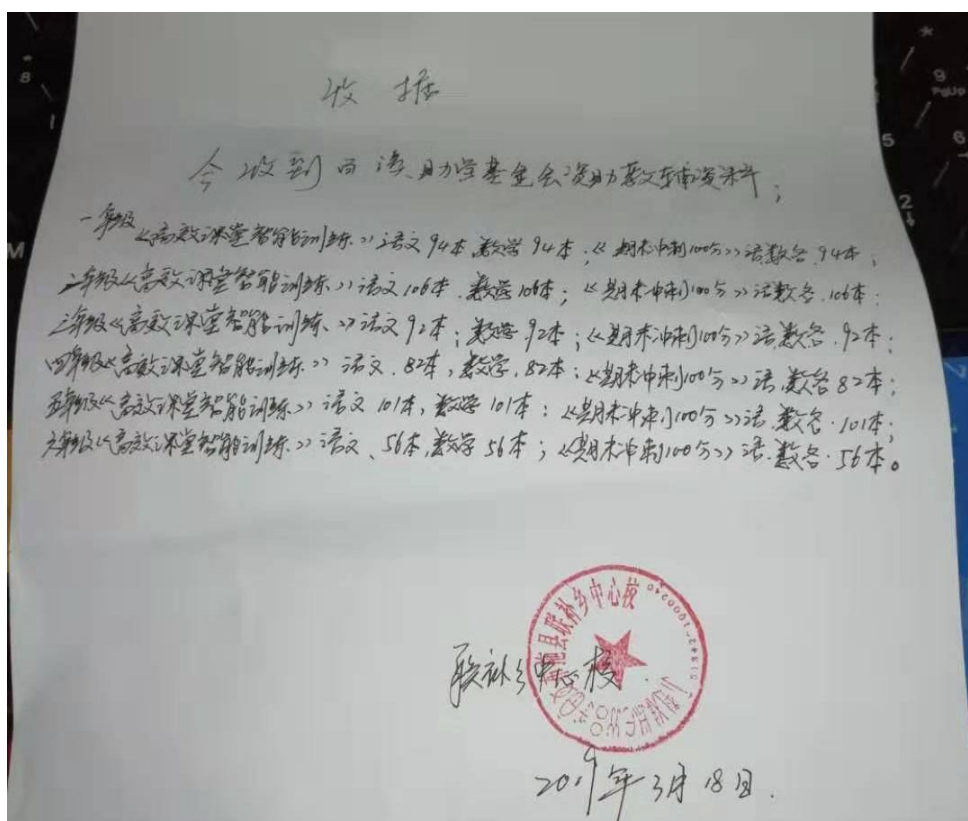 收据
今收到西部助学基金会资助教辅资料;
一年级《高效课堂智能训练》语文94本 数学94本;《期末冲刺100分》语数各94本;
二年级《高效课堂智能训练》语文106本、数学106本;《期末冲刺100分》语数各106本;
三年级《高效课堂智能训练》语文92本;数学92本;《期末冲刺100分》语、数各92本;
四年级《高效课堂智能训练》语文82本,数学82本;《期末冲刺100分》语、数各82本;
五年级《高效课堂智能训练》语文101本,数学101本;《期末冲刺100分》语、数各101本;
六年级《高效课堂智能训练》语文、56本,数学56本;《期末冲刺100分》语、数各56本。
县联补乡中心校
联补乡中心校
2019年3月18日.
* 8
9 PgUp
5
6
2
M